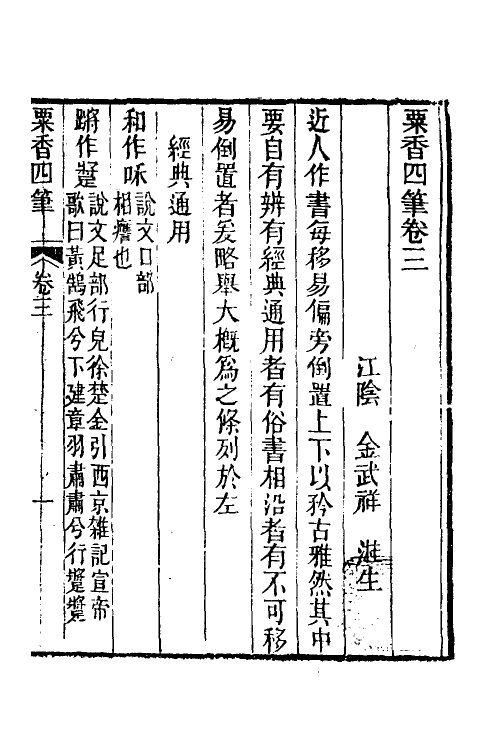 粟香四筆卷三
江陰 金武祥 溎生
近人作書每移易偏旁倒置上下以矜古雅然其中
要自有辨有經典通用者有俗書相沿者有不可移
易倒置者爰略舉大概爲之條列於左
經典通用
和作咊說文口部
相譍也
蹡作蹩說文足部行皃徐楚金引西京雜記宣帝
歌曰黃鵠飛兮下建章羽肅肅兮行蹡蹡
粟香四筆 卷三 一